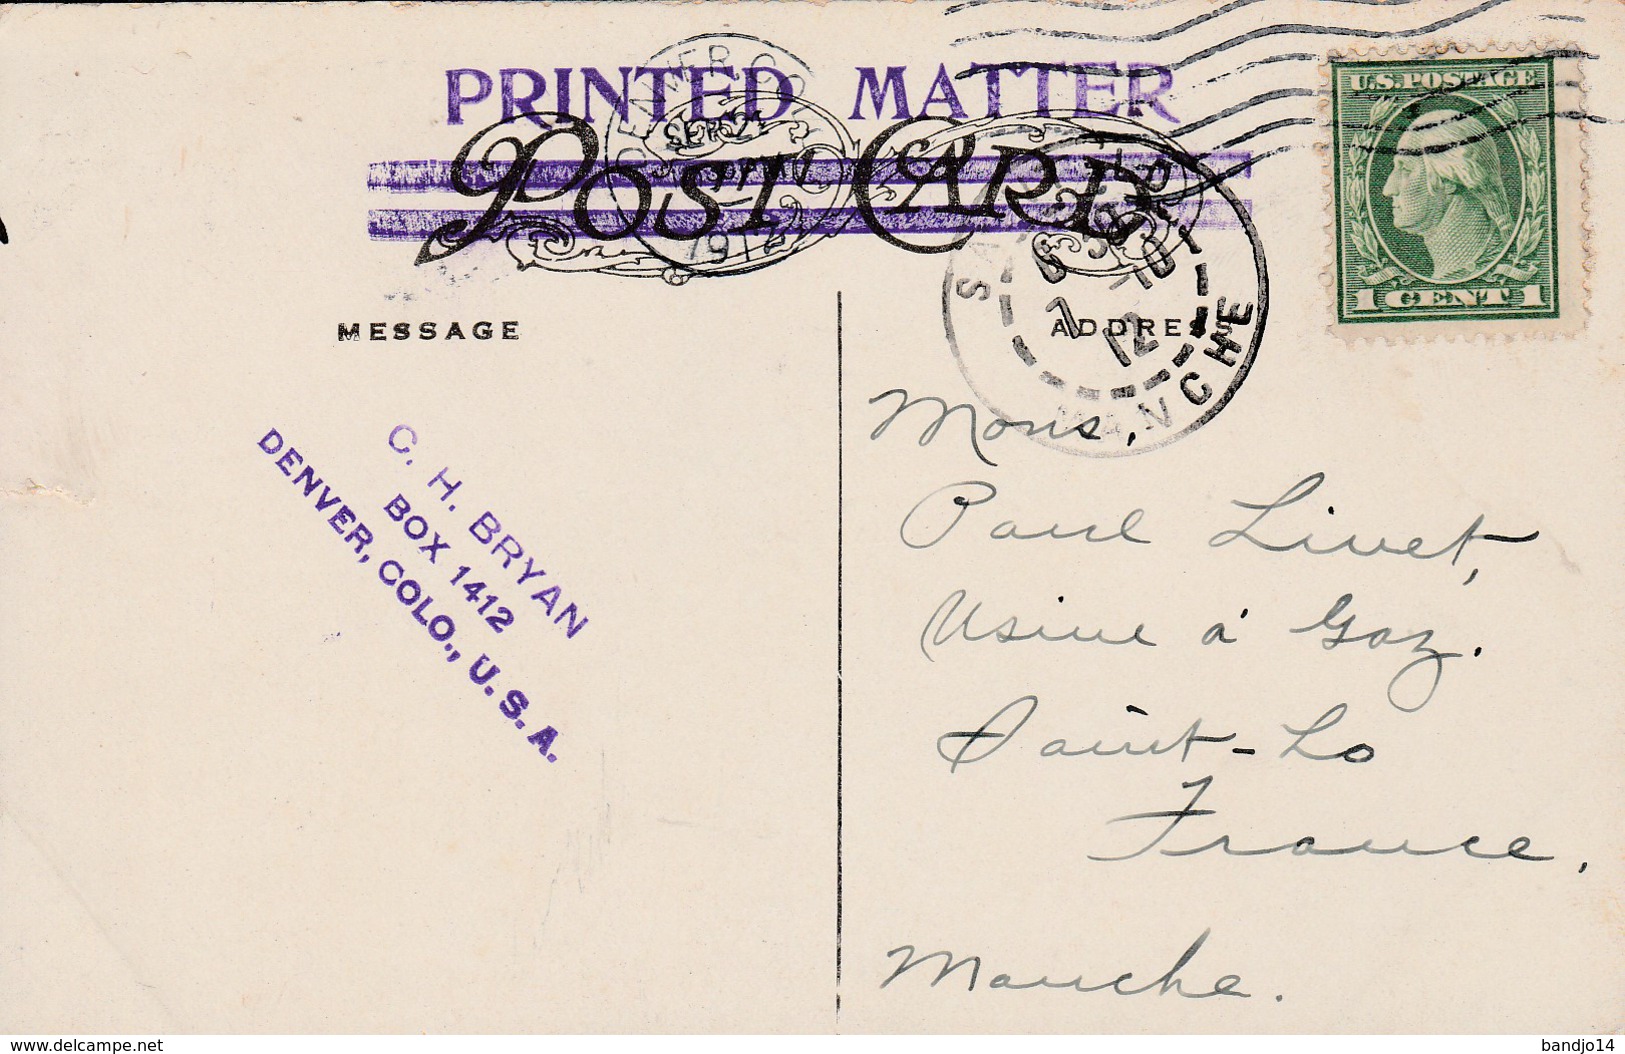 PRINTED MATTER
POST CARD
DENVER, COLO.
SEP 21
1912
U.S. POSTAGE
1 CENT 1
MANCHE
7 -10
12
MESSAGE
ADDRESS
C. H. BRYAN
BOX 1412
DENVER, COLO., U.S.A.
Mons,
Paul Livet,
Usine à Gaz.
Saint-Lo
France,
Manche.
www.delcampe.net
bandjo14